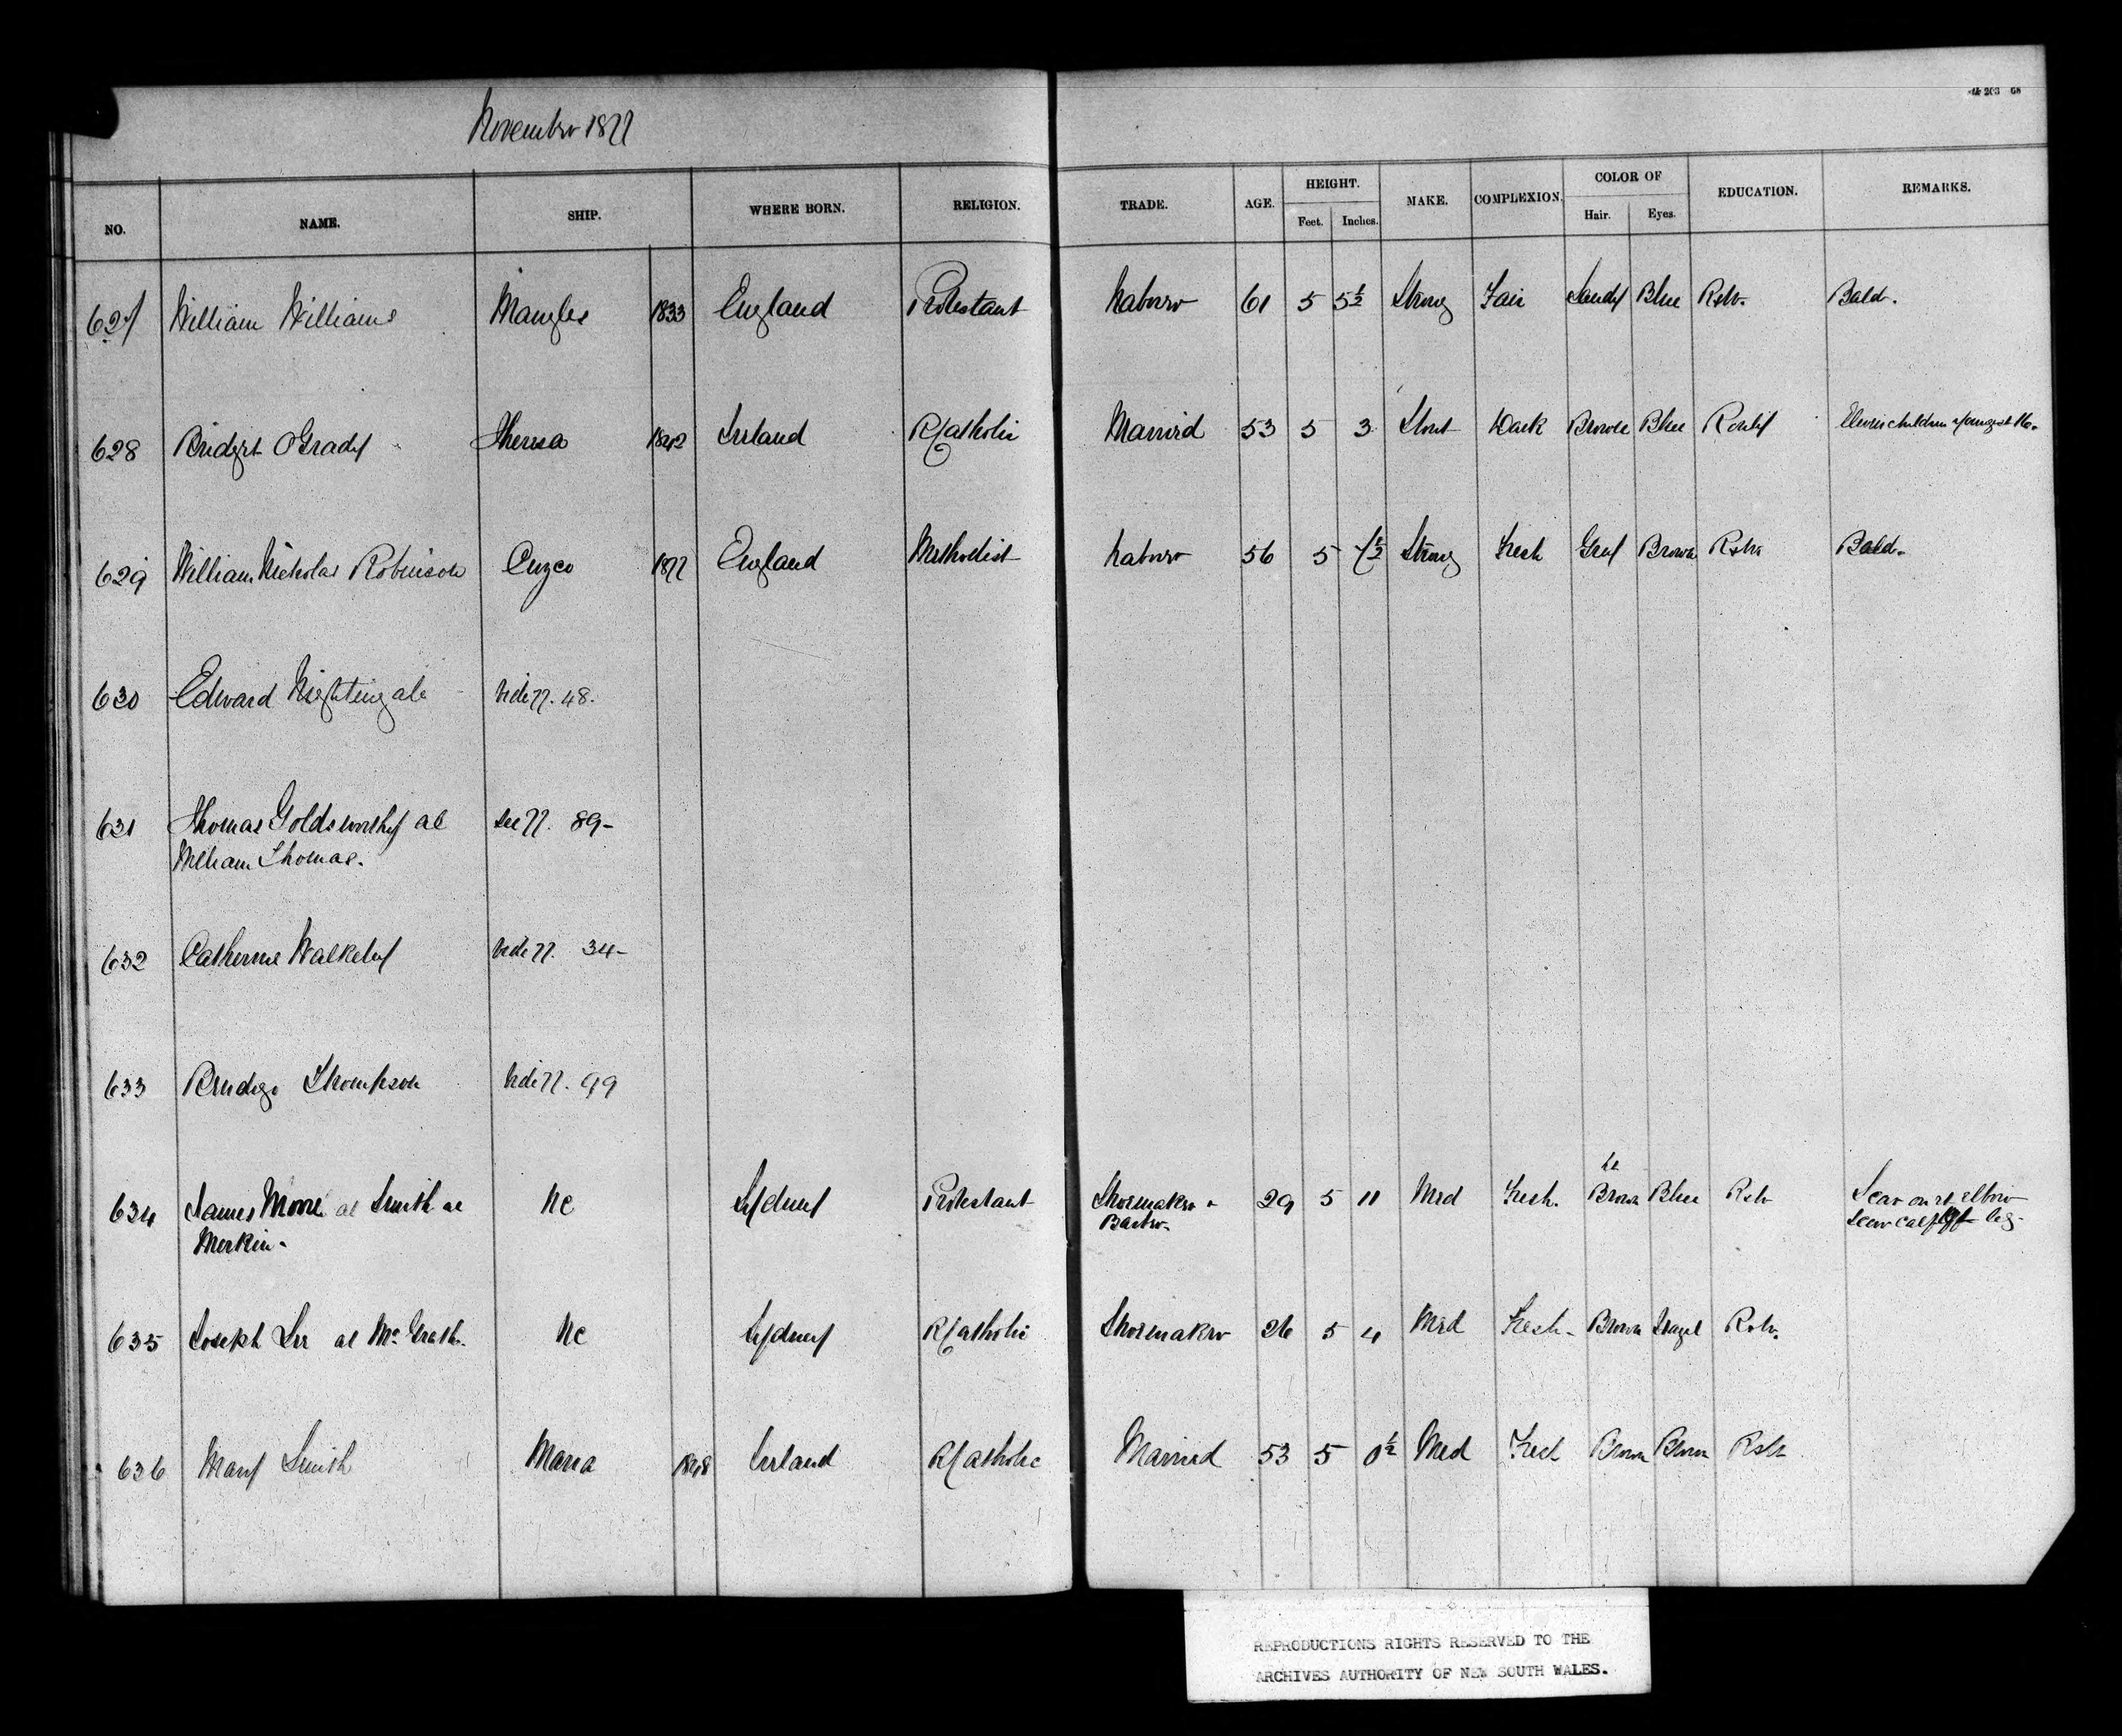 November 1877
NO. NAME. SHIP. WHERE BORN. RELIGION. TRADE. AGE. HEIGHT. Feet. Inches. MAKE. COMPLEXION. COLOR OF Hair. Eyes. EDUCATION. REMARKS.
627 William Williams Mangles 1833 England Protestant Laborer 61 5 5½ Strong Fair Sandy Blue R&W. Bald.
628 Bridget O'Grady Theresa 1842 Ireland R/Catholic Married 53 5 3 Stout Dark Brown Blue R only Eleven children youngest 16.
629 William Nicholas Robinson Cuzco 1877 England Methodist Laborer 56 5 7½ Strong Fresh Grey Brown R&W Bald.
630 Edward Nightingale Vide 77. 48.
631 Thomas Goldsworthy al See 77. 89-
William Thomas.
632 Catherine Walkely Vide 77. 34-
633 Thompson Vide 77. 99
634 James Moore al Smith al NC Sydney Protestant Shoemaker & 29 5 11 Med Fresh. Brown Blue R&W Scar on rt elbow
Merkin. Scar calf left leg.
635 Joseph Lee al McGrath. NC Sydney R/Catholic Shoemaker 26 5 4 Med Fresh- Brown Hazel R&W.
636 Mary Smith Maria 1848 Ireland R/Catholic Married 53 5 0½ Med Fresh Brown Brown R&W
REPRODUCTIONS RIGHTS RESERVED TO THE
ARCHIVES AUTHORITY OF NEW SOUTH WALES.